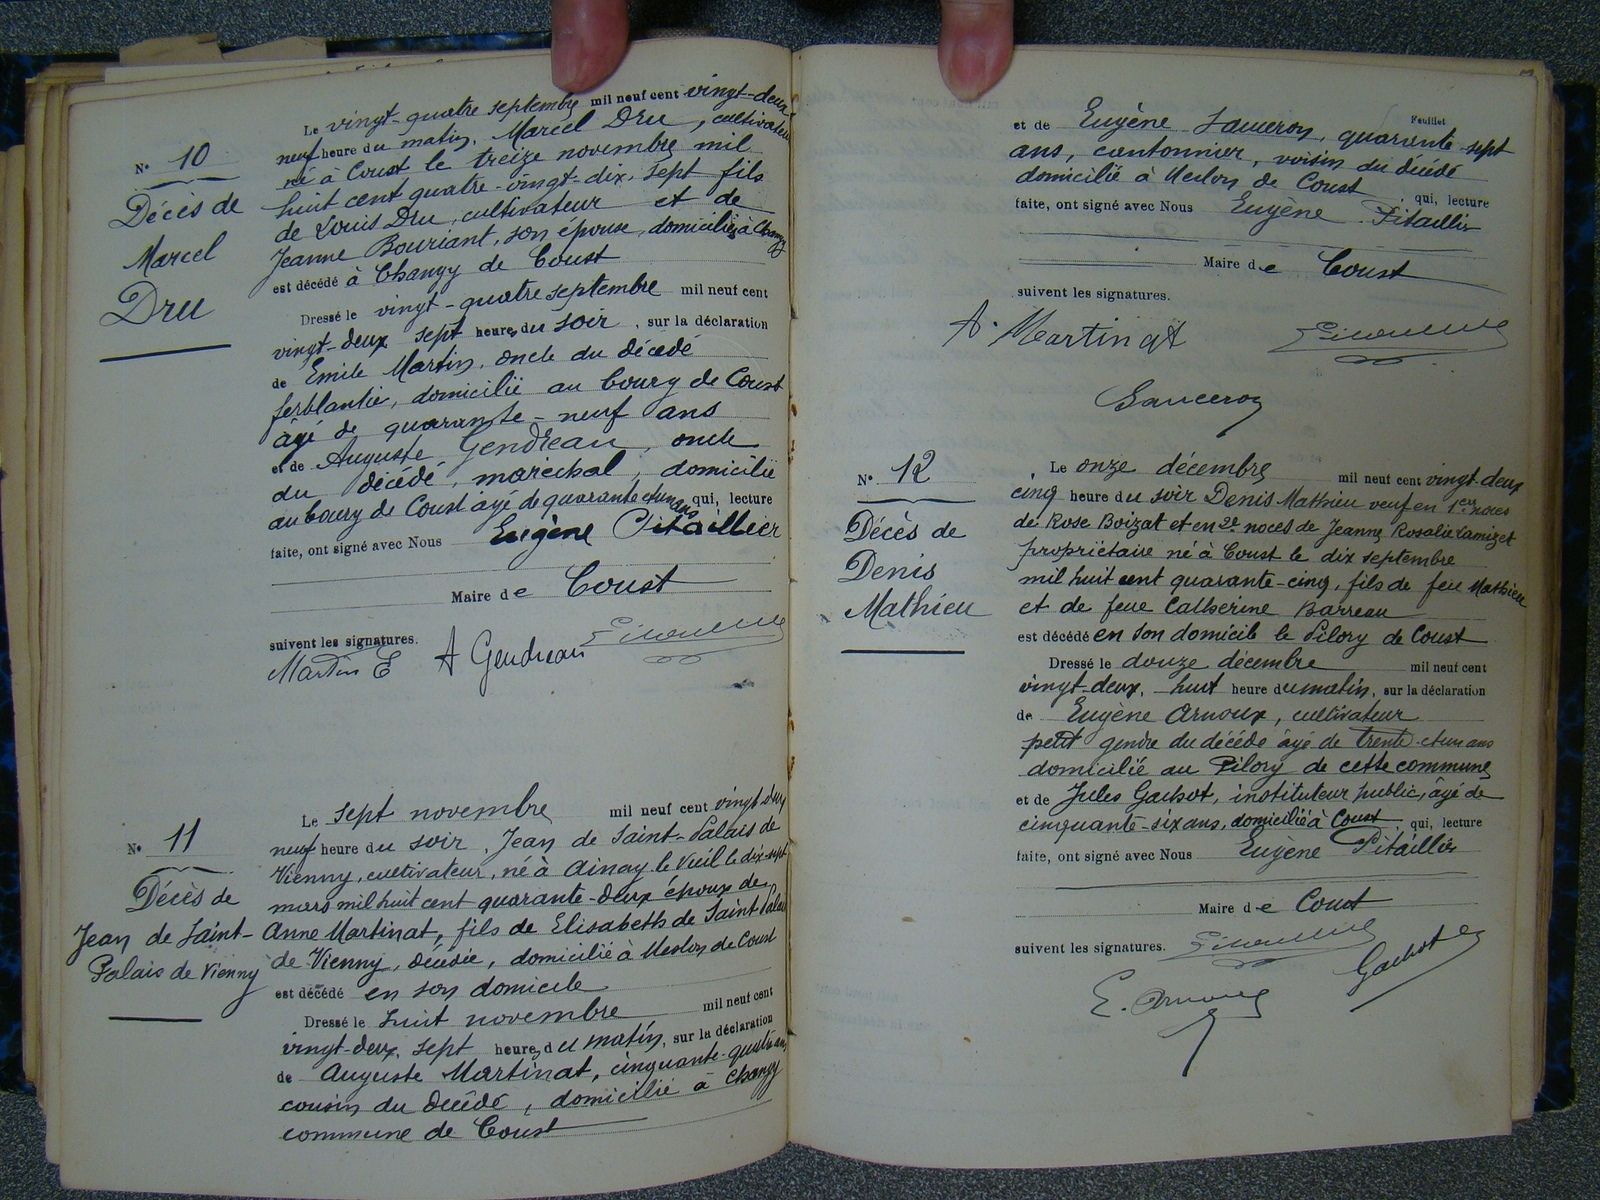 N° 10
Décès de
Marcel
Dru
Le vingt-quatre septembre mil neuf cent vingt-deux
neuf heure du matin, Marcel Dru, cultivateur
né à Coust le treize novembre mil
huit cent quatre-vingt-dix-sept fils
de Louis Dru, cultivateur et de
Jeanne Bouriant, son épouse, domiciliés à Changy
est décédé à Changy de Coust
Dressé le vingt-quatre septembre mil neuf cent
vingt-deux sept heures du soir, sur la déclaration
de Emile Martin, oncle du décédé
ferblantié, domicilié au bourg de Coust
âgé de quarante-neuf ans
et de Auguste Gendreau, oncle
du décédé, maréchal, domicilié
au bourg de Coust âgé de quarante et un ans qui, lecture
faite, ont signé avec Nous Eugène Pitaillier
Maire de Coust
suivent les signatures.
Martin E A Gendreau
N° 11
Décès de
Jean de Saint-
Palais de Vienny
Le sept novembre mil neuf cent vingt deux
neuf heure du soir, Jean de Saint-Palais de
Vienny, cultivateur, né à Ainay le Vieil le dix-sept
mars mil huit cent quarante-deux époux de
Anne Martinat, fils de Elisabeth de Saint Palais
de Vienny, décédée, domicilié à Meslon de Coust
est décédé en son domicile
Dressé le huit novembre mil neuf cent
vingt-deux, sept heures du matin, sur la déclaration
de Auguste Martinat, cinquante-quatre ans
cousin du décédé, domicilié à Changy
commune de Coust
Feuillet
et de Eugène Sauceron, quarante-sept
ans, cantonnier, voisin du décédé
domicilié à Meslon de Coust, qui, lecture
faite, ont signé avec Nous Eugène Pitaillier
Maire de Coust
suivent les signatures.
A. Martinat
Sauceron
N° 12
Décès de
Denis
Mathieu
Le onze décembre mil neuf cent vingt-deux
cinq heure du soir Denis Mathieu veuf en 1eres noces
de Rose Boizat et en 2e noces de Jeanne Rosalie Lamizet
propriétaire né à Coust le dix septembre
mil huit cent quarante-cinq, fils de feu Mathieu
et de feue Catherine Barreau
est décédé en son domicile le Pilory de Coust
Dressé le douze décembre mil neuf cent
vingt-deux, huit heure du matin, sur la déclaration
de Eugène Arnoux, cultivateur
petit gendre du décédé âgé de trente-et un ans
domicilié au Pilory de cette commune
et de Jules Gachot, instituteur public, âgé de
cinquante-six ans, domicilié à Coust, qui, lecture
faite, ont signé avec Nous Eugène Pitaillier
Maire de Coust
suivent les signatures.
Gachot
E. Arnoux